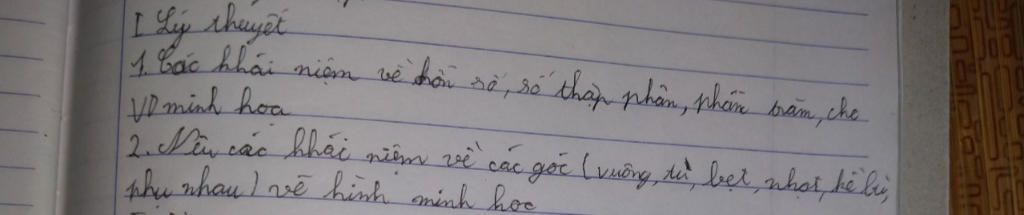 I Lý thuyết
1. Các khái niệm về hỗn số, số thập phân, phần trăm, cho
VD minh hoạ
2. Nêu các khái niệm về các góc (vuông, tù, bẹt, nhọt, kề bù,
phụ nhau) vẽ hình minh hoạ